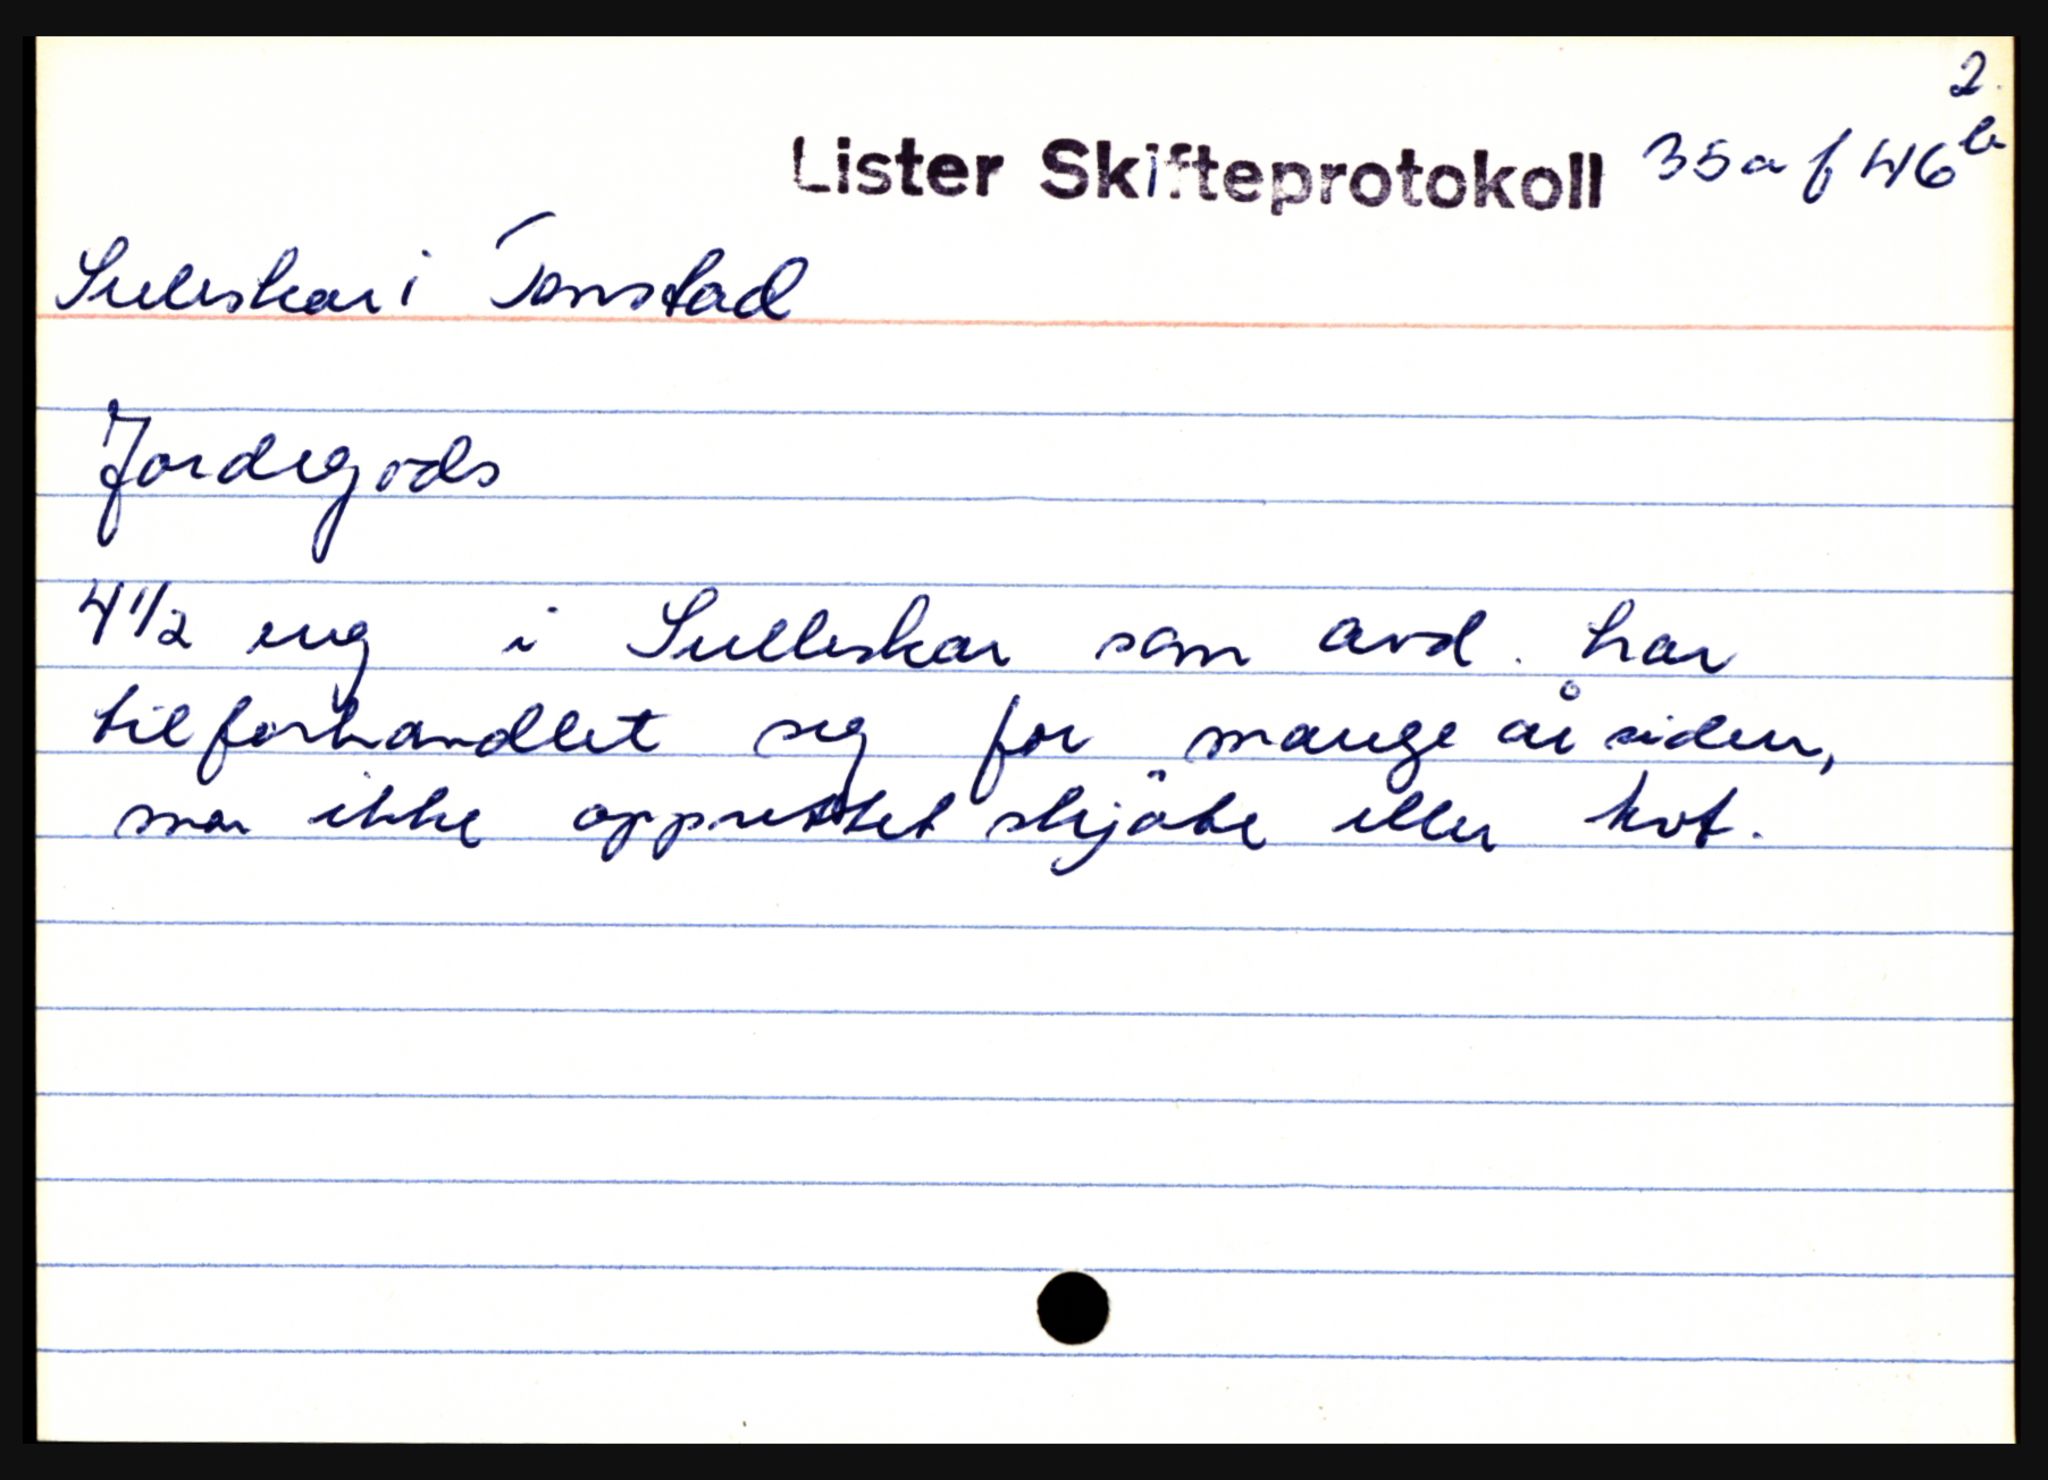 2.
Lister Skifteprotokoll 35a f 46b
Suleskar i Tonstad
Jordegods
4 1/2 eng i Sulleskar som avd. har
tilforhandlet seg for mange år siden,
men ikke opprettet skjöte eller kvt.